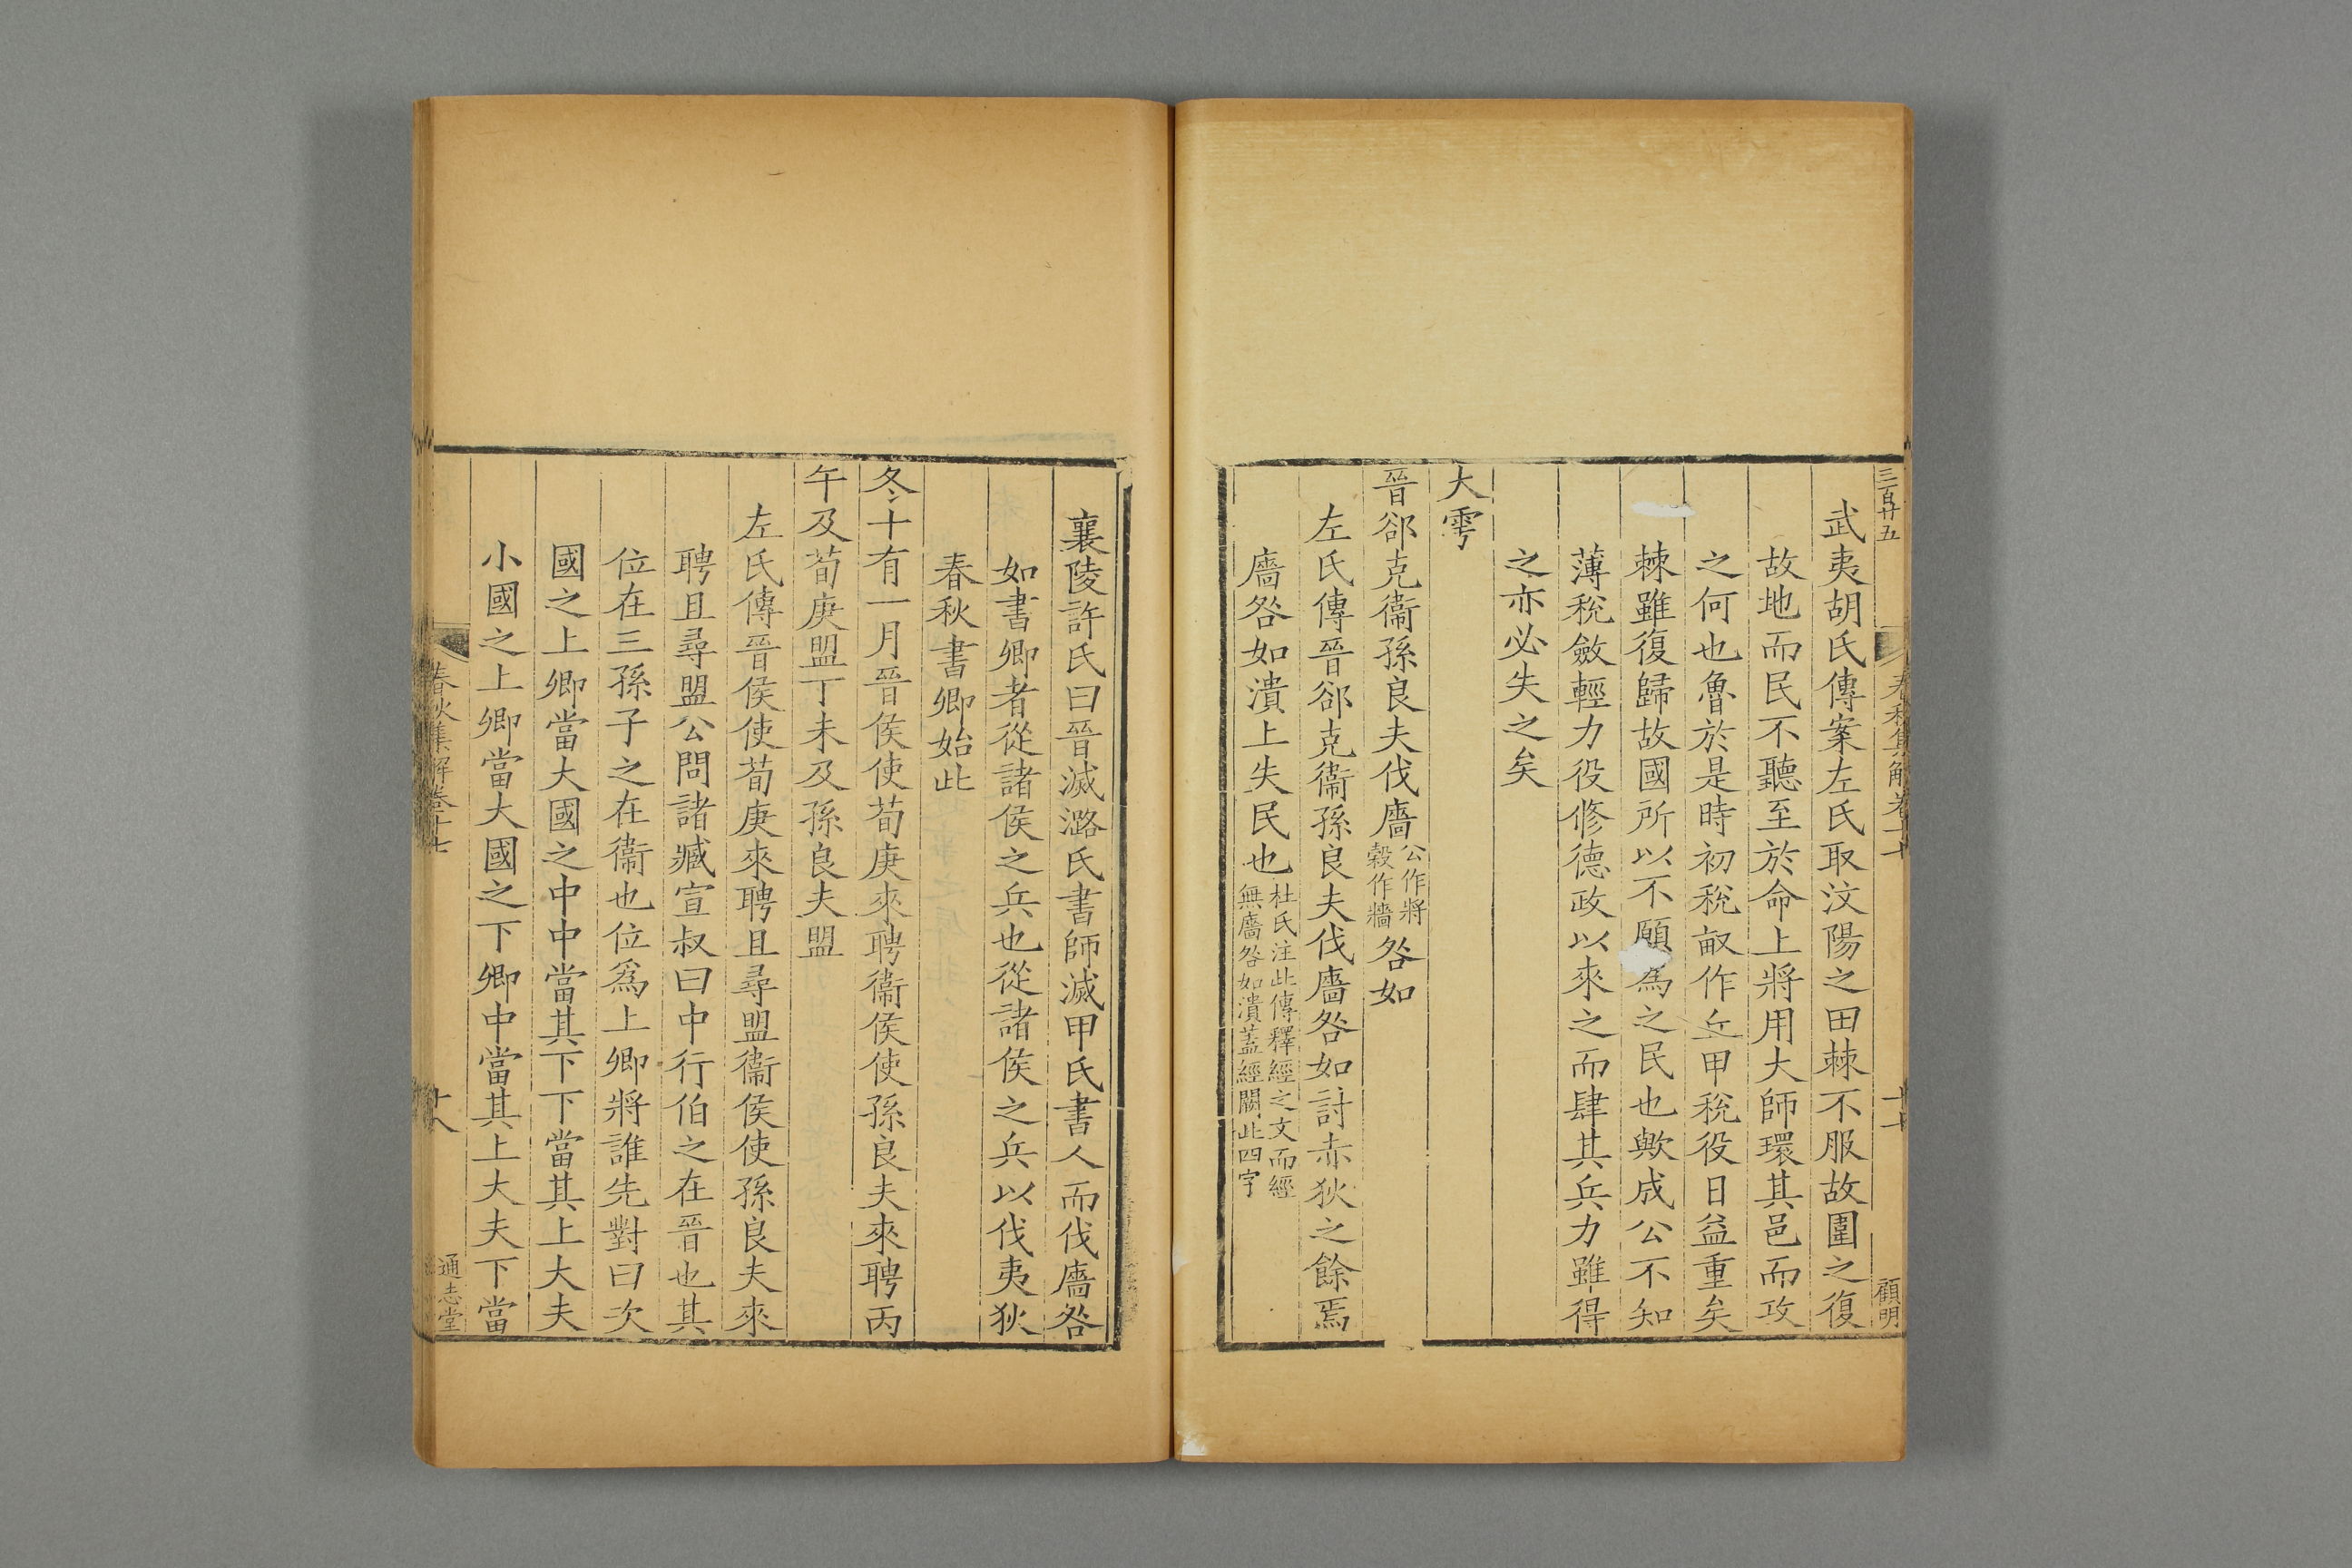 三百廿五
春秋集解卷十七
十七
顧明
武夷胡氏傳案左氏取汶陽之田棘不服故圍之復
故地而民不聽至於命上將用大師環其邑而攻
之何也魯於是時初稅畝作丘甲稅役日益重矣
棘雖復歸故國所以不願為之民也歟成公不知
薄稅斂輕力役修德政以來之而肆其兵力雖得
之亦必失之矣
大雩
晉郤克衞孫良夫伐廧公作將穀作牆咎如
左氏傳晉郤克衞孫良夫伐廧咎如討赤狄之餘焉
廧咎如潰上失民也杜氏注此傳釋經之文而經無廧咎如潰蓋經闕此四字
襄陵許氏曰晉滅潞氏書師滅甲氏書人而伐廧咎
如書卿者從諸侯之兵也從諸侯之兵以伐夷狄
春秋書卿始此
冬十有一月晉侯使荀庚來聘衞侯使孫良夫來聘丙
午及荀庚盟丁未及孫良夫盟
左氏傳晉侯使荀庚來聘且尋盟衞侯使孫良夫來
聘且尋盟公問諸臧宣叔曰中行伯之在晉也其
位在三孫子之在衞也位爲上卿將誰先對曰次
國之上卿當大國之中中當其下下當其上大夫
小國之上卿當大國之下卿中當其上大夫下當
春秋集解卷十七
十八
通志堂